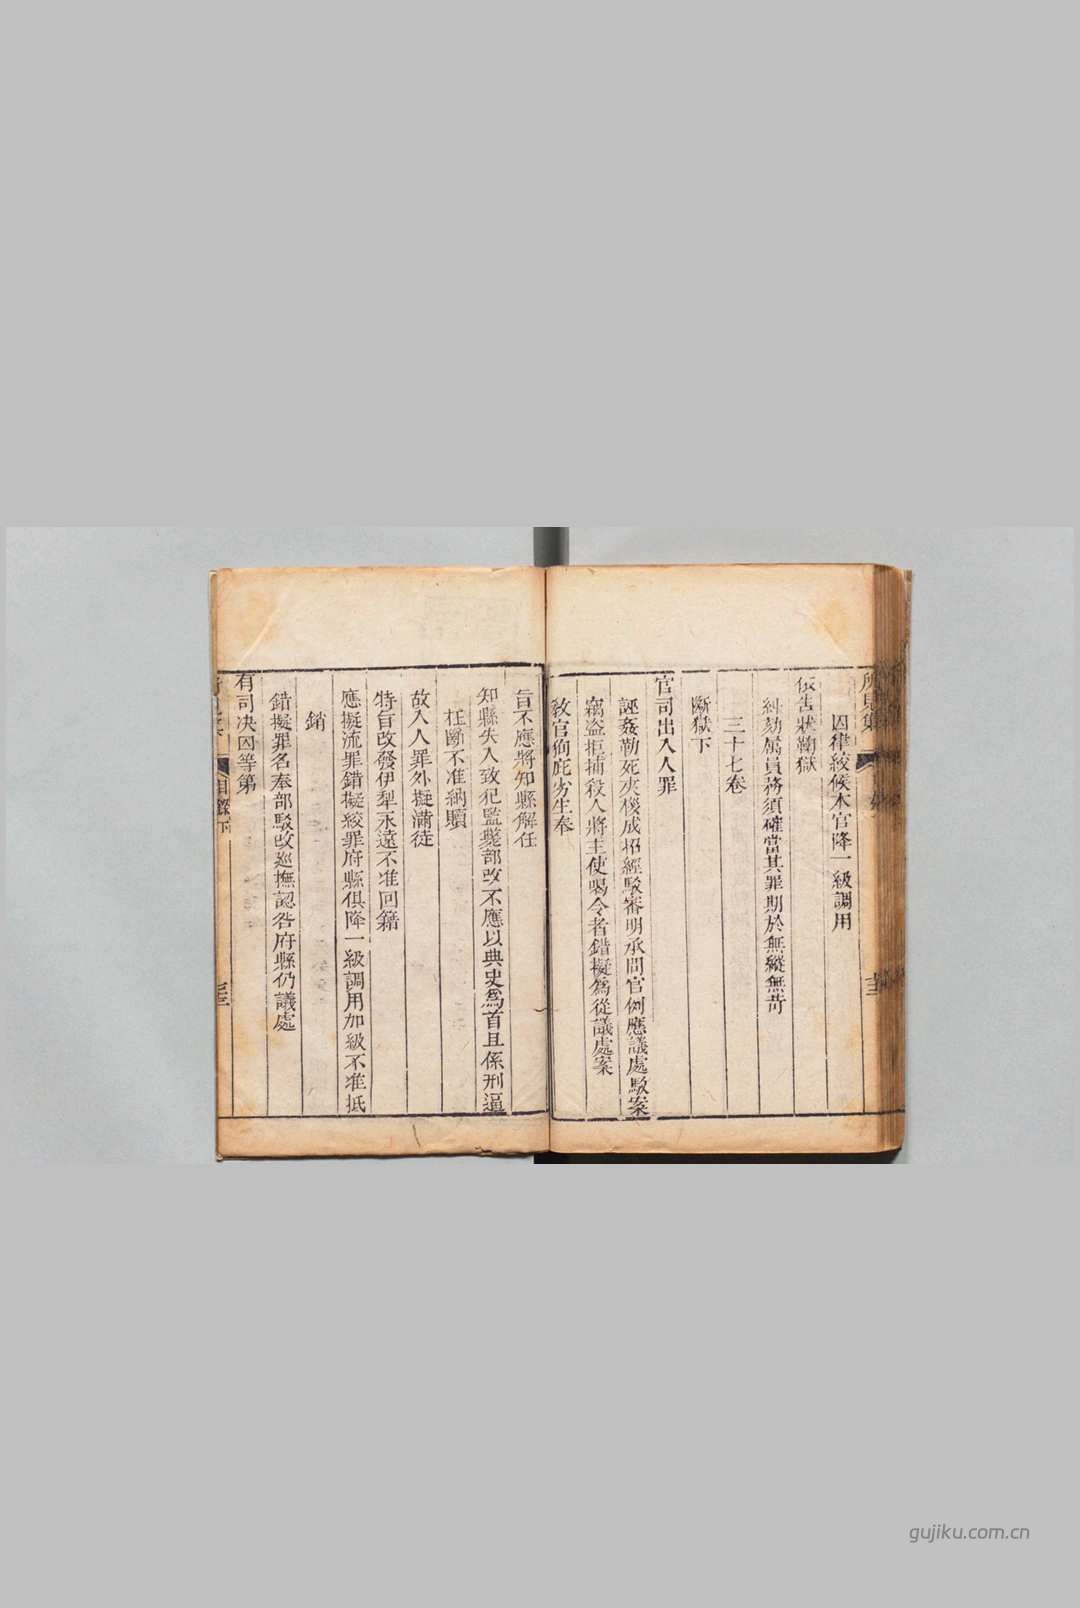 所見集
囚律絞候本官降一級調用
依告狀鞫獄
糾劾属員務須確當其罪期於無縱無苛
三十七卷
斷獄下
官司出入人罪
誣姦勒死夾棱成招經駁審明承問官例應議處駁案
竊盗拒捕殺人將主使喝令者錯擬為從議處案
教官狥庇劣生奉
旨不應將知縣解任
知縣失入致犯監斃部改不應以典史為首且係刑逼
枉斷不准納贖
故入人罪外擬滿徒
特旨改發伊犁永遠不准回籍
應擬流罪錯擬絞罪府縣俱降一級調用加級不准抵
銷
錯擬罪名奉部駁改巡撫認咎府縣仍議處
有司决囚等第
目錄下
gujiku.com.cn